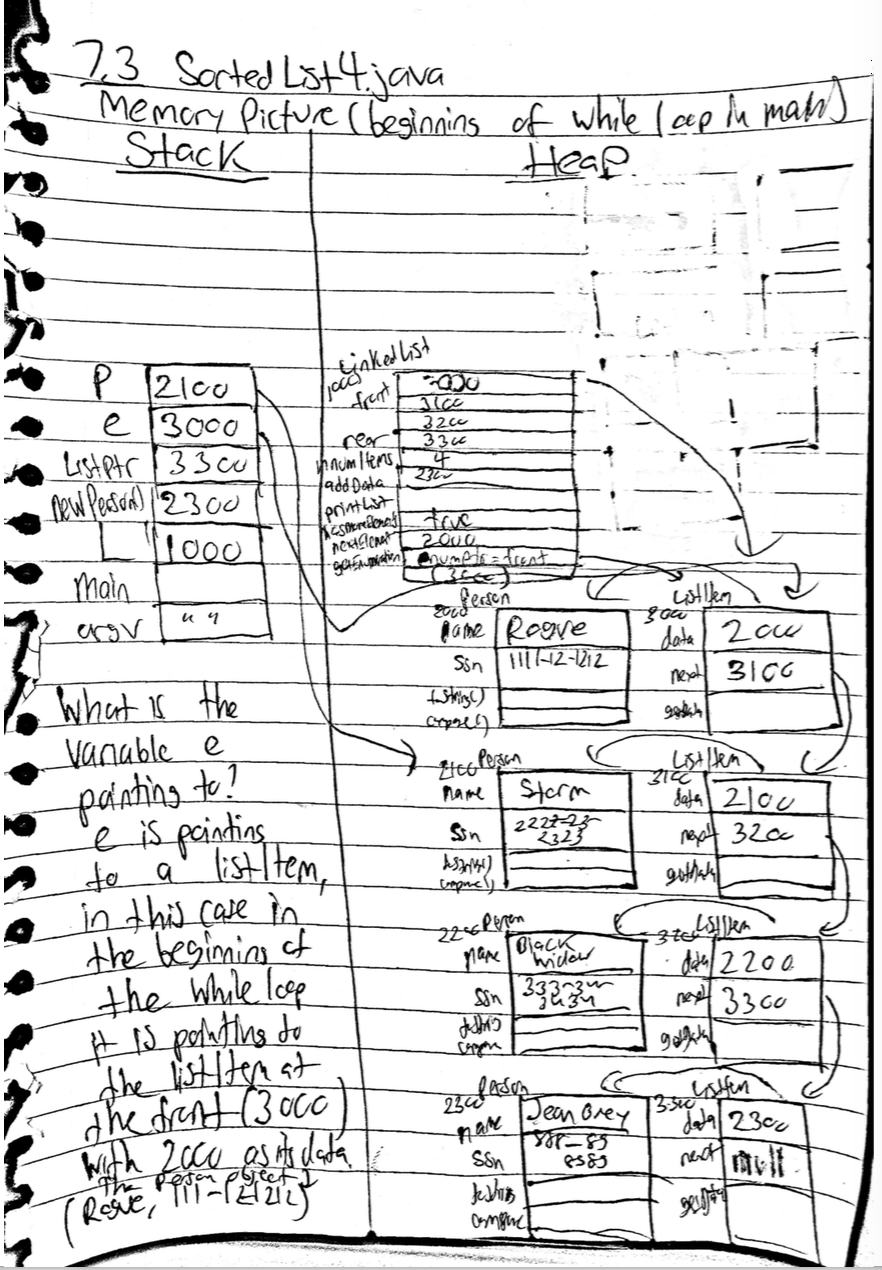 7.3 SortedList4.java
Memory Picture (beginning of while loop in main)
Stack
Heap
P 2100
e 3000
ListPtr 3300
newPerson() 2300
L 1000
main
argv " "
What is the
variable e
pointing to?
e is pointing
to a listItem,
in this case in
the beginning of
the while loop
it is pointing to
the listItem at
the front (3000)
with 2000 as its data
the person object
(Rogue, 111-121212)
LinkedList
1000
front 3000
3100
3200
rear 3300
numItems 4
addData 2300
printList
hasMoreElements true
nextElement 2000
getEnumeration enumPtr = front
(3300)
Person
2000
name Rogue
ssn 1111-12-1212
toString()
compare()
ListItem
3000
data 2000
next 3100
getData
Person
2100
name Storm
ssn 2222-23-
2323
toString()
compare()
ListItem
3100
data 2100
next 3200
getData
Person
2200
name Black
Widow
ssn 333-34-
3434
toString
compare
ListItem
3200
data 2200
next 3300
getData
Person
2300
name Jean Grey
ssn 888-89
8989
toString
compare
ListItem
3300
data 2300
next null
getData